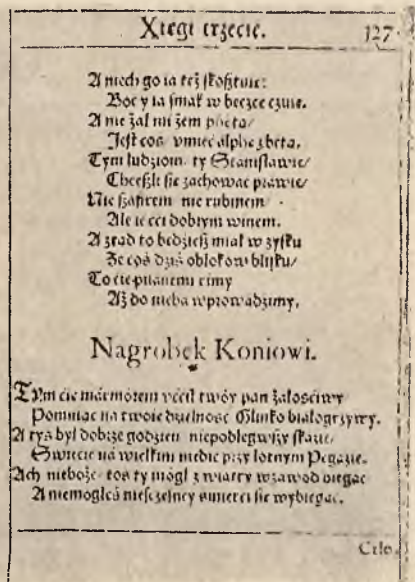 Xięgi trzecie.
127
A niech go ia też skosztuię:
Boć y ia smak w beczce czuię.
A nie żal mi żem poeta/
Jest coś vmieć alphę z betą.
Tym ludziom ty Stanisławie/
Chceszli się zachować prawie/
Nie szafirem nie rubinem
Ale ie czci dobrym winem.
A ztąd to będziesz miał w zysku
Że coś dziś obłokow blisku/
To cię pijanemi rymy
Aż do nieba wprowadzimy.
Nagrobek Koniowi.
Tym cię marmorem vczcił twóy pan żałościwy
Pomniąc na twoię dzielność Glinko białogrzywy.
A tyś był dobrze godzien niepoległwszy skazie/
Świecić na wielkim niebie przy lotnym Pegazie.
Ach nieboże toś ty mógł z wiatry wzawod biegać
A niemogłeś nieszczesney śmierci się wybiegać.